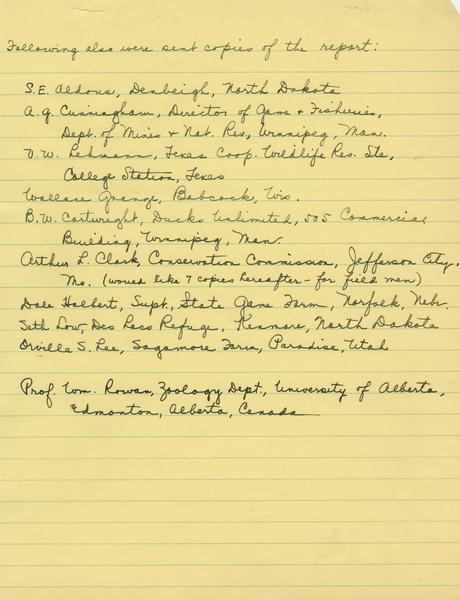 Following also were sent copies of the report:
S.E. Aldous, Denbeigh, North Dakota
A.G. Cunningham, Director of Game & Fisheries,
Dept. of Mines & Nat. Res, Winnipeg, Man.
V.W. Lehmann, Texas Coop. Wildlife Res. Sta.,
College Station, Texas
Wallace Grange, Babcock, Wis.
B.W. Cartwright, Ducks Unlimited, 505 Commercial
Building, Winnipeg, Man.
Arthur L. Clark, Conservation Commission, Jefferson City,
Mo. (would like 7 copies hereafter - for field men)
Dale Halbert, Supt. State Game Farm, Norfolk, Nebr.
Seth Low, Des Lacs Refuge, Kenmare, North Dakota
Orville S. Lee, Sagamore Farm, Paradise, Utah
Prof. Wm. Rowan, Zoology Dept., University of Alberta,
Edmonton, Alberta, Canada